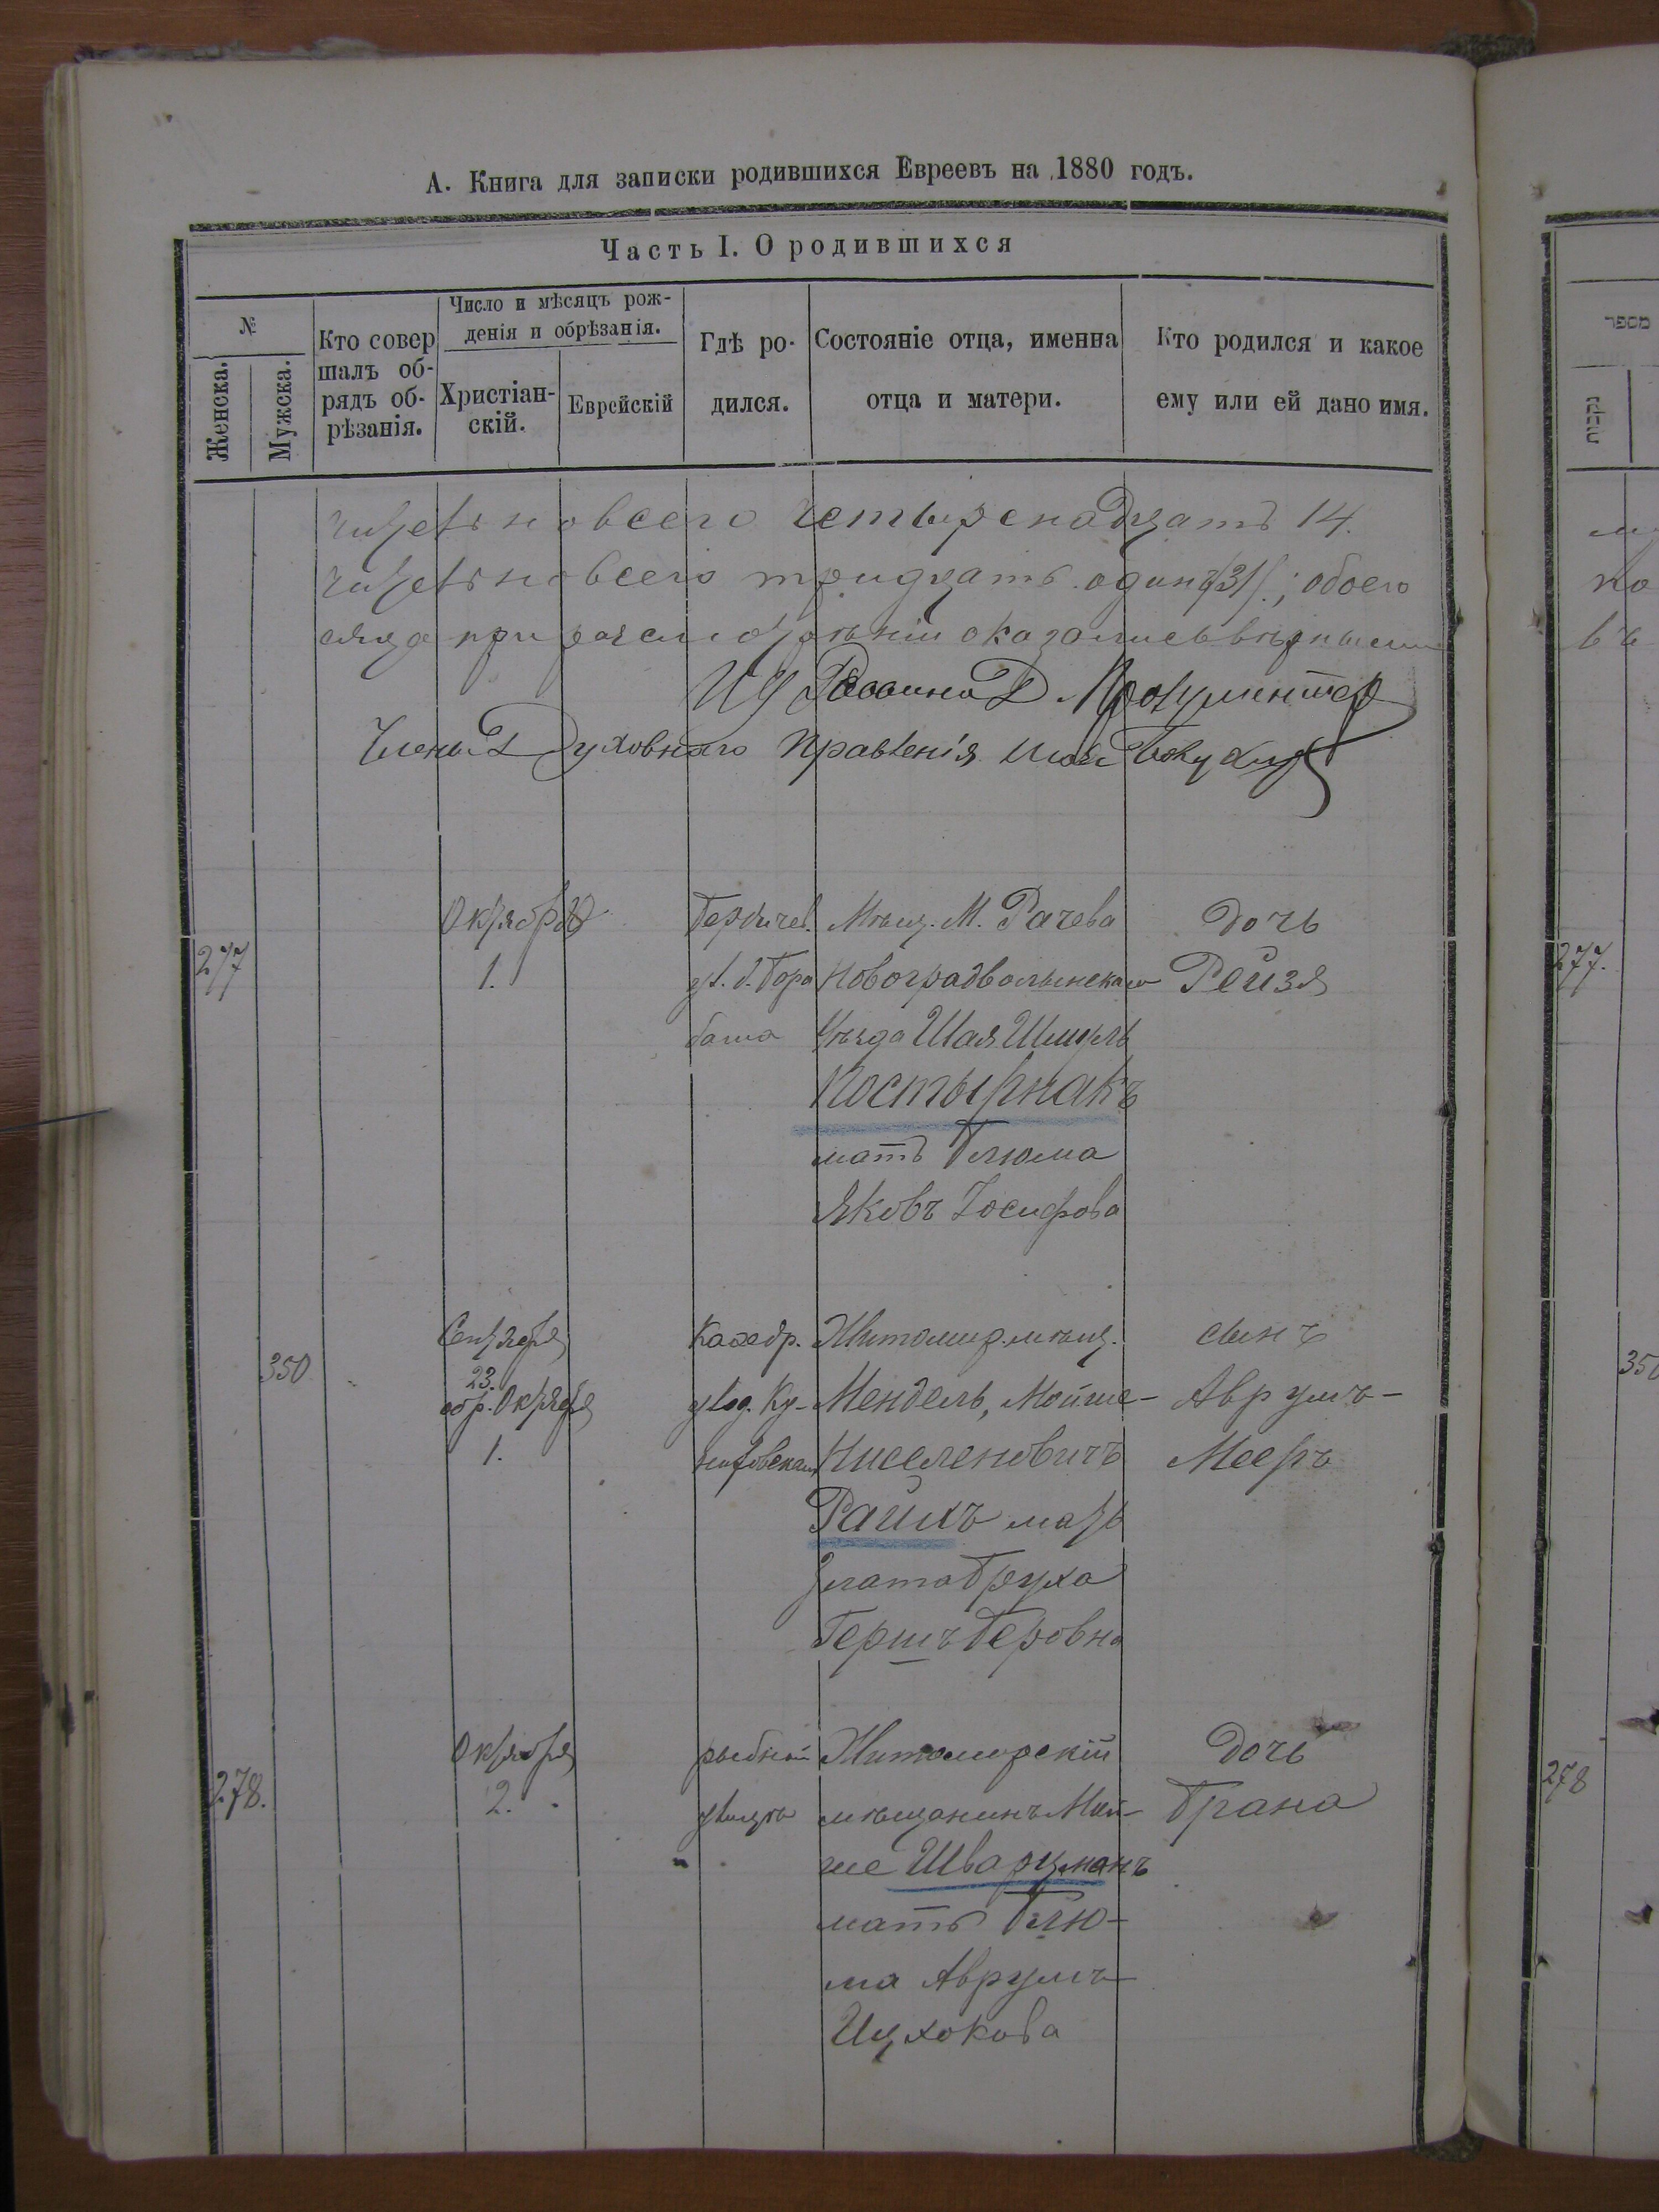 А. Книга для записки родившихся Евреевъ на 1880 годъ.
Часть I. О родившихся
№
Женска.
Мужска.
Кто совер
шалъ об-
рядъ об-
рѣзанія.
Число и мѣсяцъ рож-
денія и обрѣзанія.
Христіан-
скій.
Еврейскій
Гдѣ ро-
дился.
Состояніе отца, именна
отца и матери.
Кто родился и какое
ему или ей дано имя.
всего четырнадцать 14.
всего тридцать одинъ /31/.; обоего
при оказались вѣрными
И Д Раввина
Членъ Духовнаго Правленія
277
Октября
1.
Бердичев.
ул. д. Гора
баша
Мѣщ. М. Рачева
Новоградволынскаго
Уѣзда Шая Шмуль
Костырнакъ
мать Блюма
Яковъ Іосифова
Дочь
Рейзя
350
Сентября
23.
обр. Октября
1.
Кафедр.
ул. д. Ку-
Житомир. мѣщ.
Мендель, Мойше-
Ниселеновичъ
Райхъ мать
Злата Бруха
Гершъ Беровна
сынъ
Аврумъ-
Мееръ
278.
Октября
2.
рыбной
улицѣ
Житомирскій
мѣщанинъ Мой-
ше Шварцманъ
мать Блю-
ма Аврумъ-
Ицхокова
Дочь
Брана
מספר
נקבות
277.
350
278